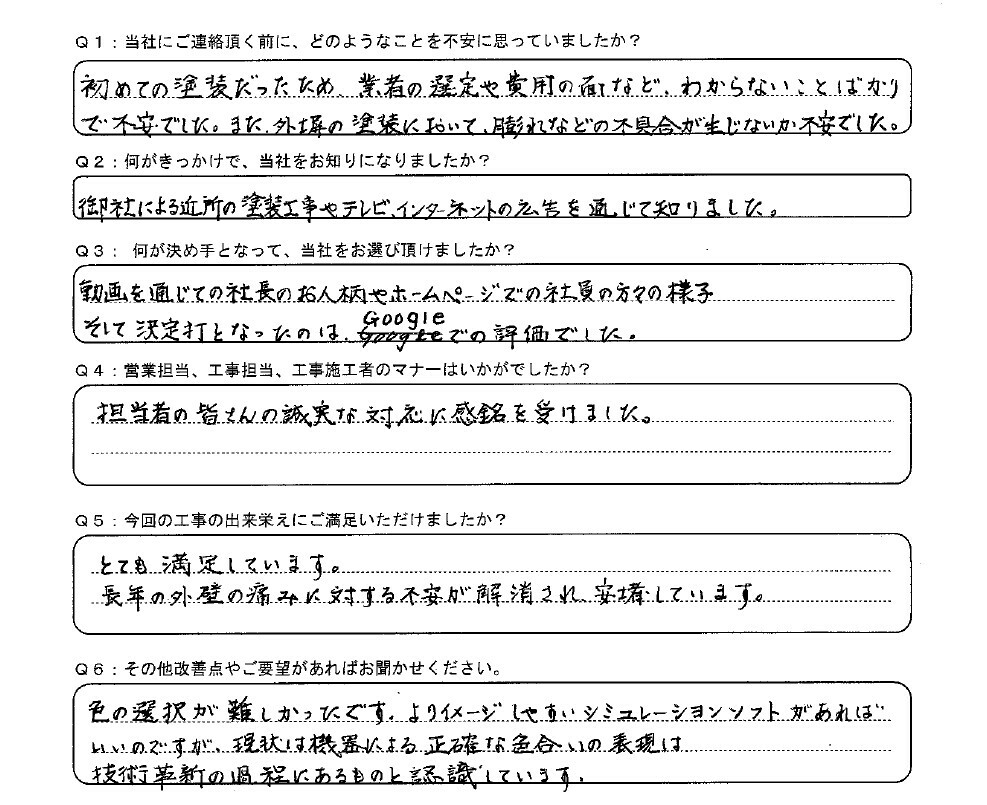 Q1：当社にご連絡頂く前に、どのようなことを不安に思っていましたか？
初めての塗装だったため、業者の選定や費用の面など、わからないことばかり
で不安でした。また、外塀の塗装において、膨れなどの不具合が生じないか不安でした。
Q2：何がきっかけで、当社をお知りになりましたか？
御社による近所の塗装工事やテレビ、インターネットの広告を通じて知りました。
Q3： 何が決め手となって、当社をお選び頂けましたか？
動画を通じての社長のお人柄やホームページでの社員の方々の様子
そして決定打となったのは、Googleでの評価でした。
Q4：営業担当、工事担当、工事施工者のマナーはいかがでしたか？
担当者の皆さんの誠実な対応に感銘を受けました。
Q5：今回の工事の出来栄えにご満足いただけましたか？
とても満足しています。
長年の外壁の痛みに対する不安が解消され、安堵しています。
Q6：その他改善点やご要望があればお聞かせください。
色の選択が難しかったです。よりイメージしやすいシミュレーションソフトがあれば
いいのですが、現状は機器による正確な色合いの表現は
技術革新の過程にあるものと認識しています。